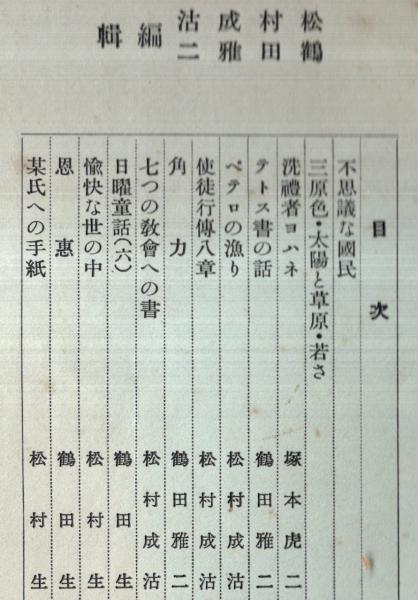 松村成沽
鶴田雅二
編輯
目次
不思議な國民
三原色・太陽と草原・若さ
洗禮者ヨハネ 塚本虎二
テトス書の話 鶴田雅二
ペテロの漁り 松村成沽
使徒行傳八章 松村成沽
角力 鶴田雅二
七つの敎會への書 松村成沽
日曜童話(六) 鶴田生
愉快な世の中 松村生
恩惠 鶴田生
某氏への手紙 松村生